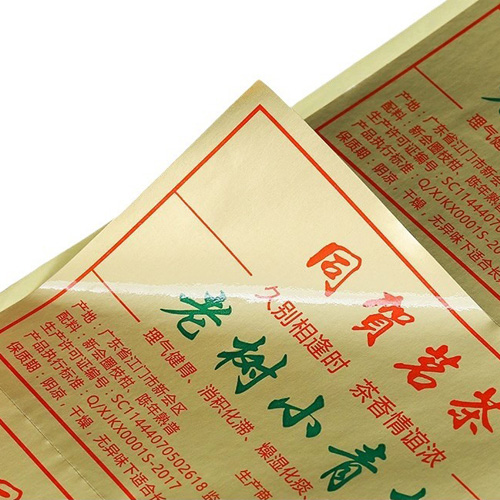 同賀茗茶
久别相逢时 茶香情谊浓
老树小青
理气健胃、消积化滞、燥湿化痰、
产地:广东省江门市新会区
配料:新会圈枝柑 陈年熟普
生产许可证编号:SC11444070502618
产品执行标准:Q/XJKX0001S-2017
保质期:阴凉,干燥,无异味下适合长
生产商
理气健
产地:广东省江门市新会
配料:新会圈枝柑 陈年熟普
生产许可证编号:SC11444070502618
产品执行标准:Q/XJKX0001S-2017
保质期:阴凉,干燥,无异味下适合